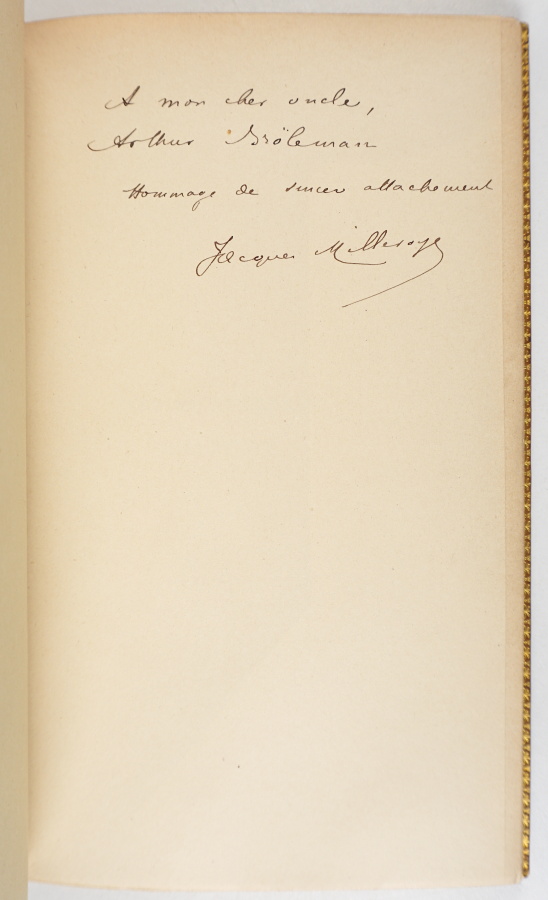 A mon cher oncle,
Arthur Brölemann
Hommage de sincer attachement
Jacques Millevoye